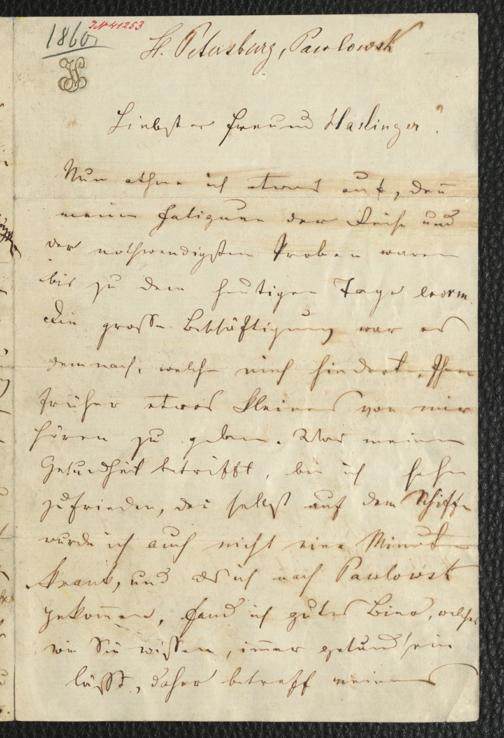 1860.
St. Petersburg, Pawlowsk
Liebster Freund Haslinger!
Nun athme ich etwas auf, den
meine Fatiguen der Reise und
der nothwendigsten Proben waren
bis zu dem heutigen Tage enorm.
Die grosse Beschäftigung war es
demnach, welche mich hinderte, Ihnen
früher etwas Kleines von mir
hören zu geben. Was meine
Gesundheit betrifft, bin ich sehr
zufrieden, den selbst auf dem Schiffe
wurde ich auch nicht eine Minute
krank, und als ich nach Pawlowsk
gekommen, fand ich gutes Bier, welches
wie Sie wissen, immer gesund sein
läßt, daher betreff meines